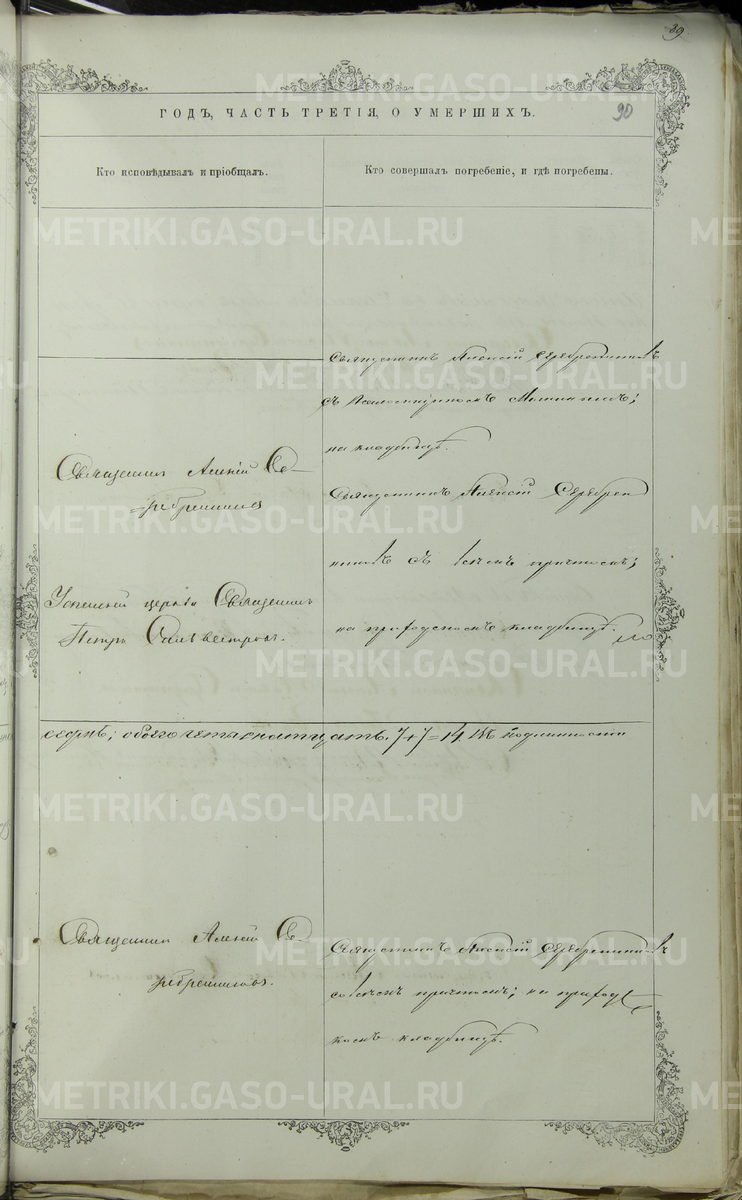 39
ГОДЪ, ЧАСТЬ ТРЕТІЯ, О УМЕРШИХЪ.
90
Кто исповѣдывалъ и пріобщалъ.
Кто совершалъ погребеніе, и гдѣ погребены.
Священникъ Алексій Серебренниковъ
съ Псаломщикомъ
на кладбищѣ.
Священникъ Алексій Се-
ребренниковъ
Священникъ Алексій Серебрен
никовъ съ всѣмъ причтомъ;
на приходскомъ кладбищѣ.
Успенской церкви Священникъ
Петръ Сильвестровъ.
седмь; обоего четырнатцать. 7+7=14.
Священникъ Алексій Се-
ребренниковъ.
Священникъ Алексій Серебренниковъ
со всѣмъ причтомъ; на приход
скомъ кладбищѣ.
METRIKI.GASO-URAL.RU